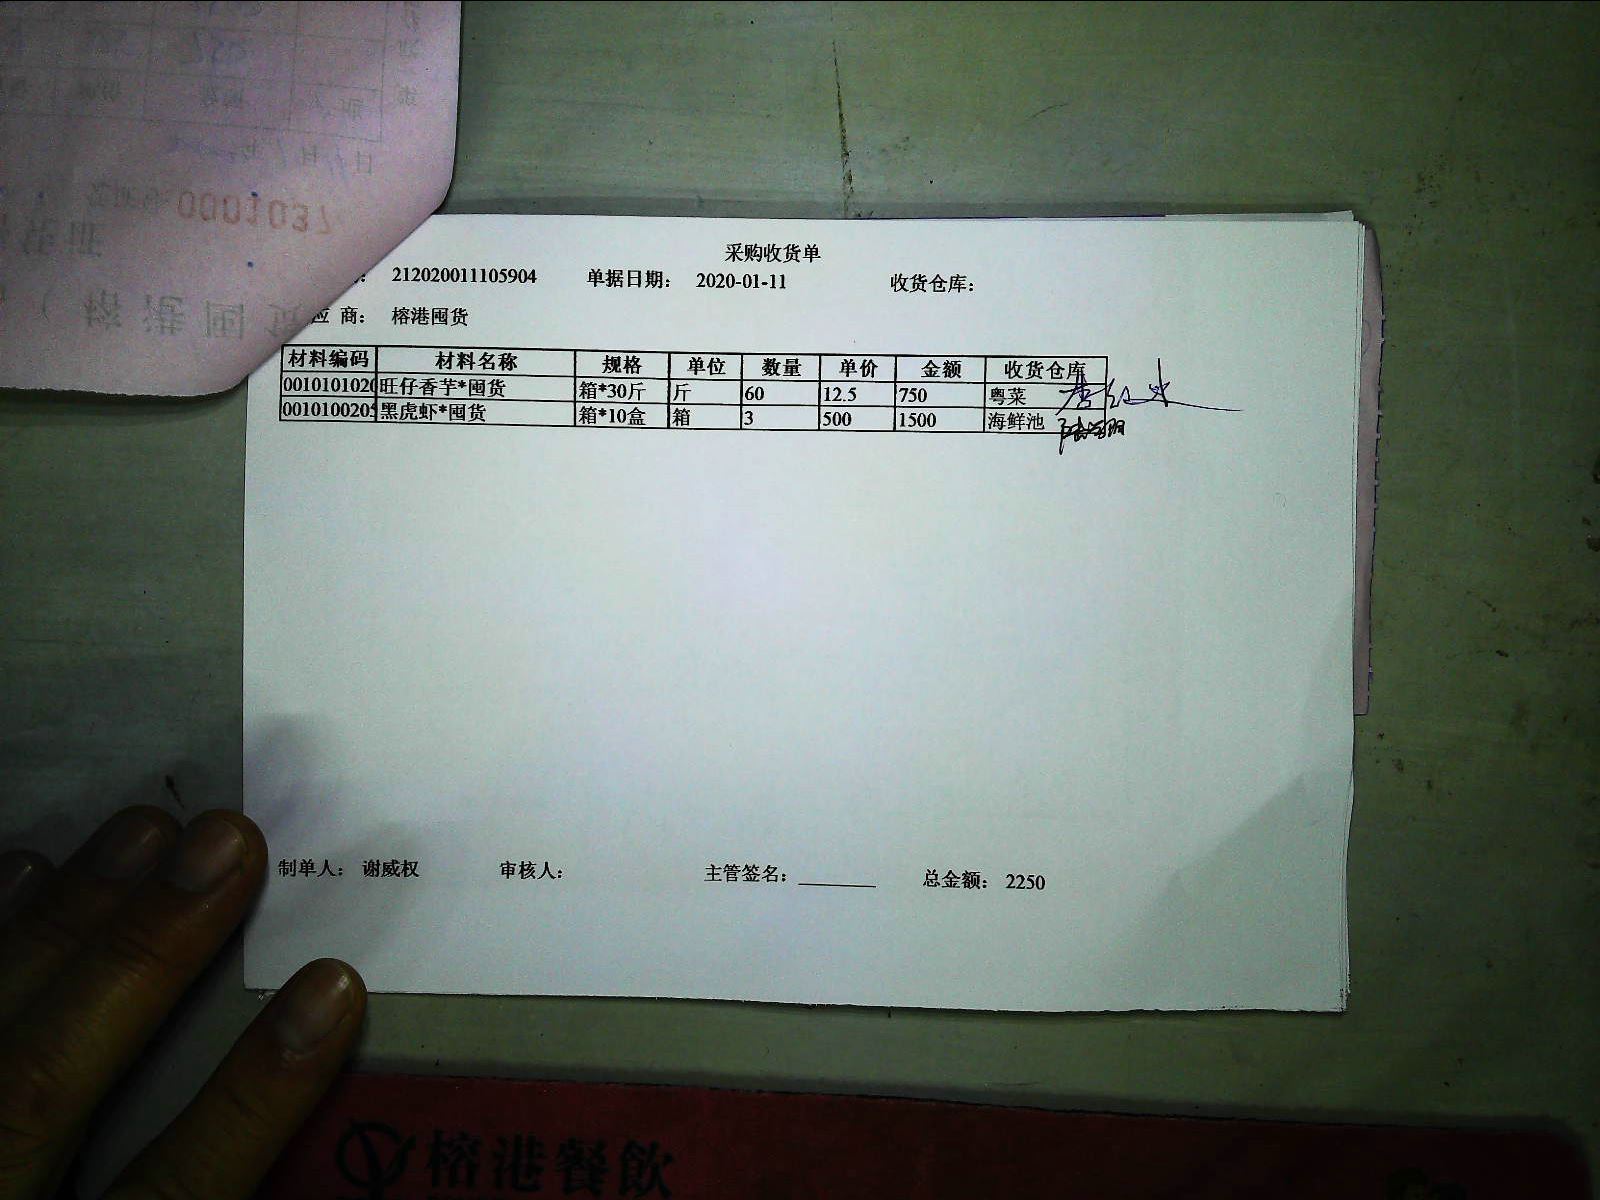 0001037
采购收货单
212020011105904 单据日期： 2020-01-11 收货仓库：
应 商： 榕港囤货
材料编码 材料名称 规格 单位 数量 单价 金额 收货仓库
0010101020 旺仔香芋*囤货 箱*30斤 斤 60 12.5 750 粤菜
001010020 黑虎虾*囤货 箱*10盒 箱 3 500 1500 海鲜池
制单人： 谢威权 审核人： 主管签名： 总金额： 2250
榕港餐飲